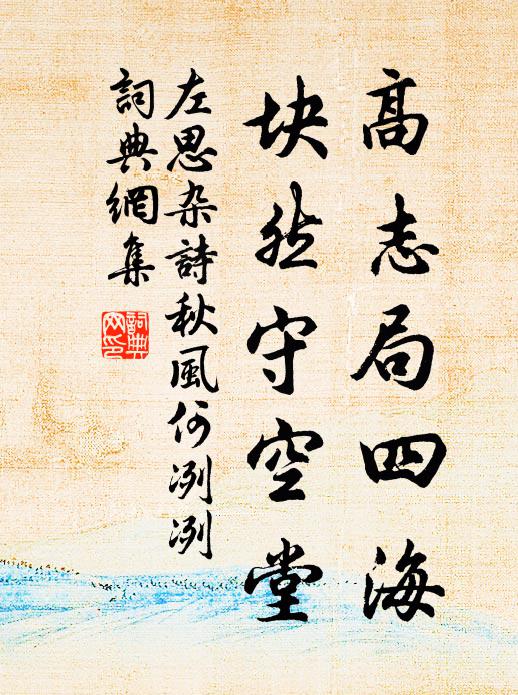 高志局四海
块然守空堂
左思杂詩秋風何冽冽
詞典網集
詞典网印